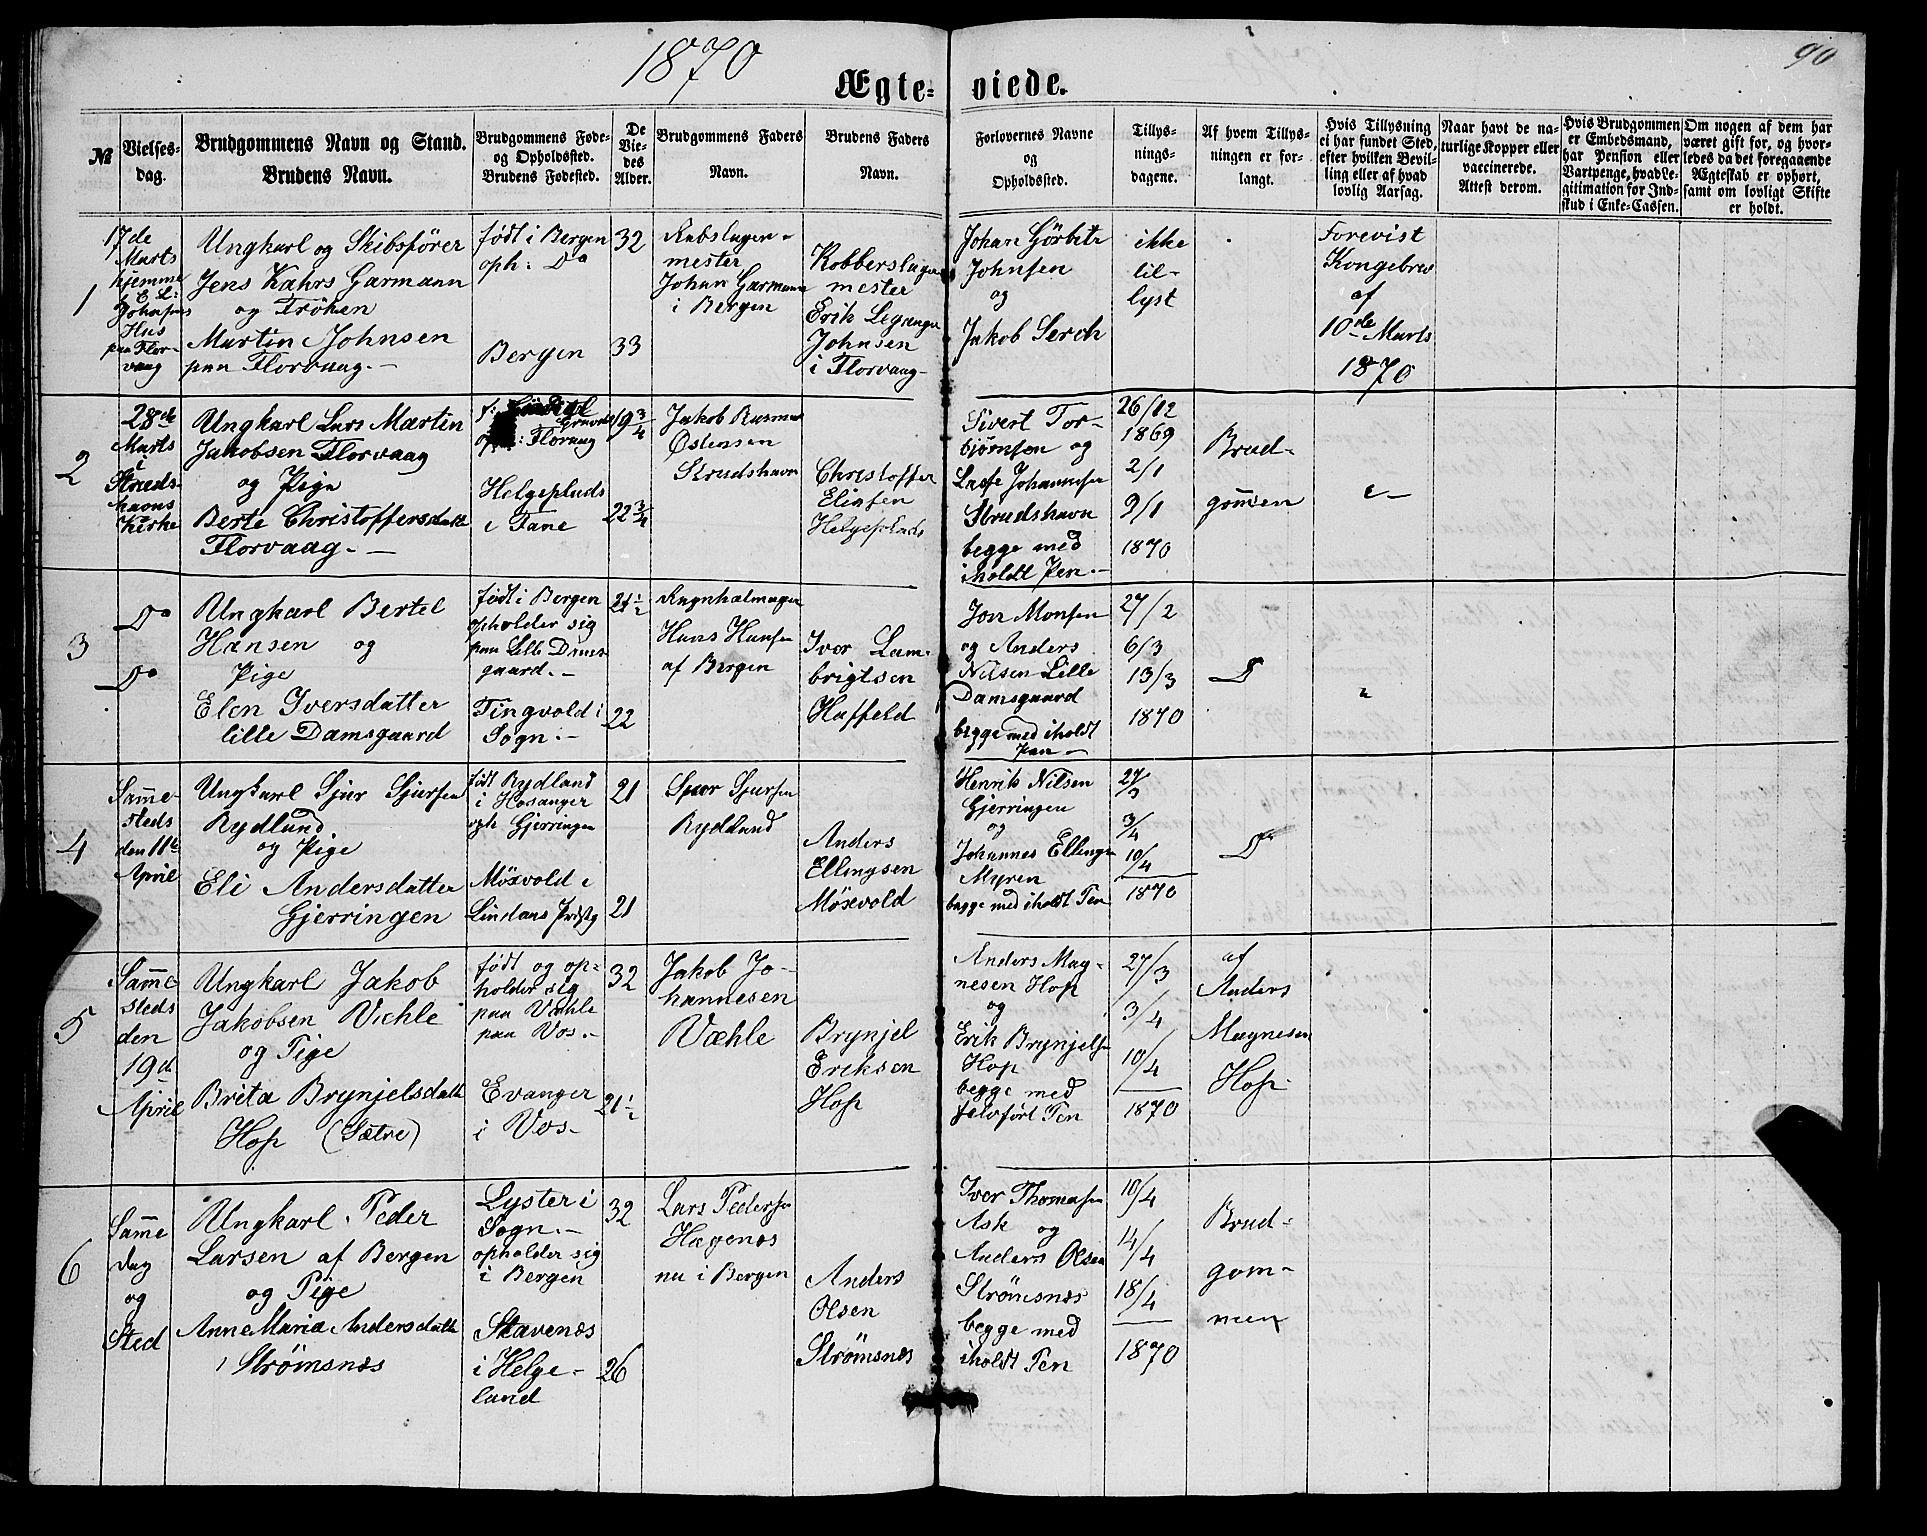 1870
90
Ægte- viede.
№
Vielses-
dag.
Brudgommens Navn og Stand.
Brudens Navn.
Brudgommens Føde-
og Opholdssted.
Brudens Fødested.
De
Vie-
des
Alder.
Brudgommens Faders
Navn.
Brudens Faders
Navn.
Forlovernes Navne
og
Opholdssted.
Tillys-
nings-
dagene.
Af hvem Tillys-
ningen er for-
langt.
Hvis Tillysning
ei har fundet Sted,
efter hvilken Bevil-
ling eller af hvad
lovlig Aarsag.
Naar havt de na-
turlige Kopper eller
vaccinerede.
Attest derom.
Hvis Brudgommen
er Embedsmand,
har Pension eller
Vartpenge, hvad Le-
gitimation for Ind-
skud i Enke-Cassen.
Om nogen af dem har
været gift før, og hvor-
ledes da det foregaaende
Ægteskab er ophørt,
samt om lovligt Skifte
er holdt.
1
17de
Marts
hjemme
i E L:
Johnsens
Hus
paa Flor-
vaag
Ungkarl og Skibsfører
Jens Kahrs Garmann
og Frøken
Martin Johnsen
paa Florvaag.-
født i Bergen
oph: Do
Bergen
32
33
mester
Johan Garmann
i Bergen
Kobberslager
mester
Erik Legranger
Johnsen
i Florvaag-
Johan Görbitz
Johnsen
og
Jakob Serch
ikke
til-
lyst
Forevist
Kongebrev
af
10de Marts
1870
2
28de
Marts
i
Struds-
havns
Kirke
Ungkarl Lars Martin
Jakobsen Florvaag
og Pige
Berte Christoffersdatt
Florvaag.-
Florvaag
Helgeplads
i Fane
19 3/4
22 3/4
Jakob Rasmus
Østensen
Strudshavn
Christoffer
Eliasen
Helgeplads
Sivert Tor-
bjørnsen og
Lasse Johannesen
Strudshavn
begge med
iholdt Pen.-
26/12
1869
2/1
9/1
1870
Brud-
gom̄en
3
Do
Do
Ungkarl Bertel
Hansen og
Pige
Elen Iversdatter
lille Damsgaard
født i Bergen
opholder sig
paa Lille Dams
gaard.-
Tingvold i
Sogn.-
21 1/2
22
Hans Hansen
af Bergen
Ivor Lam-
brigtsen
Haffeld
Jon Monsen
og Anders
Nilsen Lille
Damsgaard
begge med iholdt
Pen-
27/2
6/3
13/3
1870
Do
4
Sam̄e-
steds
den 11te
April
Ungkarl Sjur Sjursen
Rydland
og Pige
Eli Andersdatter
Gjerringen
født Rydland
i Hosanger
oph Gjerringen
Mösvold i
Lindaas Prstg
21
21
Sjur Sjursen
Rydland
Anders
Ellingsen
Mösvold
Henrik Nilsen
Gjerringen
og
Johannes Ellings
Myren
begge med iholdt Pen
27/3
3/4
10/4
1870
Do
5
Sam̄e-
steds
den
19d
April
Ungkarl Jakob
Jakobsen Væhle
og Pige
Brita Brynjelsdatt
Hop (Sætre)
født og op-
holder sig
paa Væhle
paa Vos.-
Evanger
i Vos-
32
21 1/2
Jakob Jo-
hannesen
Væhle
Brynjel
Eriksen
Hop
Anders Mag-
nesen Hop
og
Erik Brynjelsen
Hop
begge med
ført Pen
27/3
3/4
10/4
1870
af
Anders
Magnesen
Hop.
6
Sam̄e
dag
og
Sted
Ungkarl Peder
Larsen af Bergen
og Pige
Anne Maria Andersdatt
Strømsnæs
Lyster i
Sogn.-
opholder sig
i Bergen
Stavenæs
i Helge-
land
32
26
Lars Pedersen
Hagenæs
nu i Bergen
Anders
Olsen
Strømsnæs
Ivor Thomasen
Ask og
Anders Olsen
Strømsnæs
begge med
iholdt Pen
10/4
14/4
18/4
1870
Brud-
gom-
men